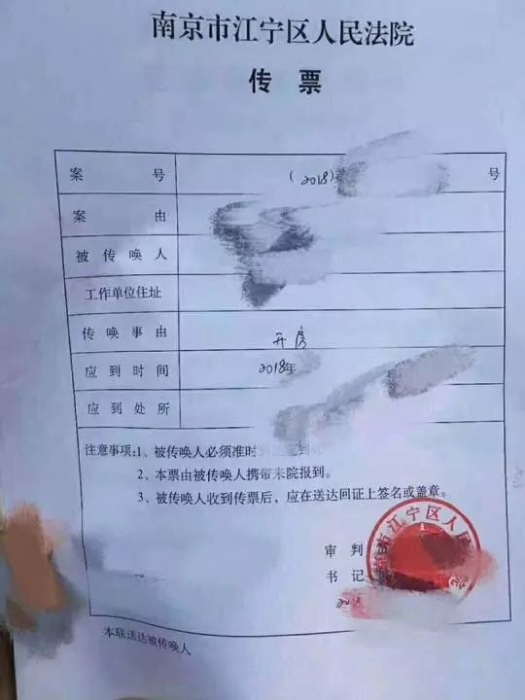 南京市江宁区人民法院
传 票
案 号 (2018) 号
案 由
被传唤人
工作单位住址
传唤事由 开房
应到时间 2018年
应到处所
注意事项:1、被传唤人必须准时
2、本票由被传唤人携带来院报到。
3、被传唤人收到传票后，应在送达回证上签名或盖章。
市江宁区人民
审 判
书 记
本联送达被传唤人